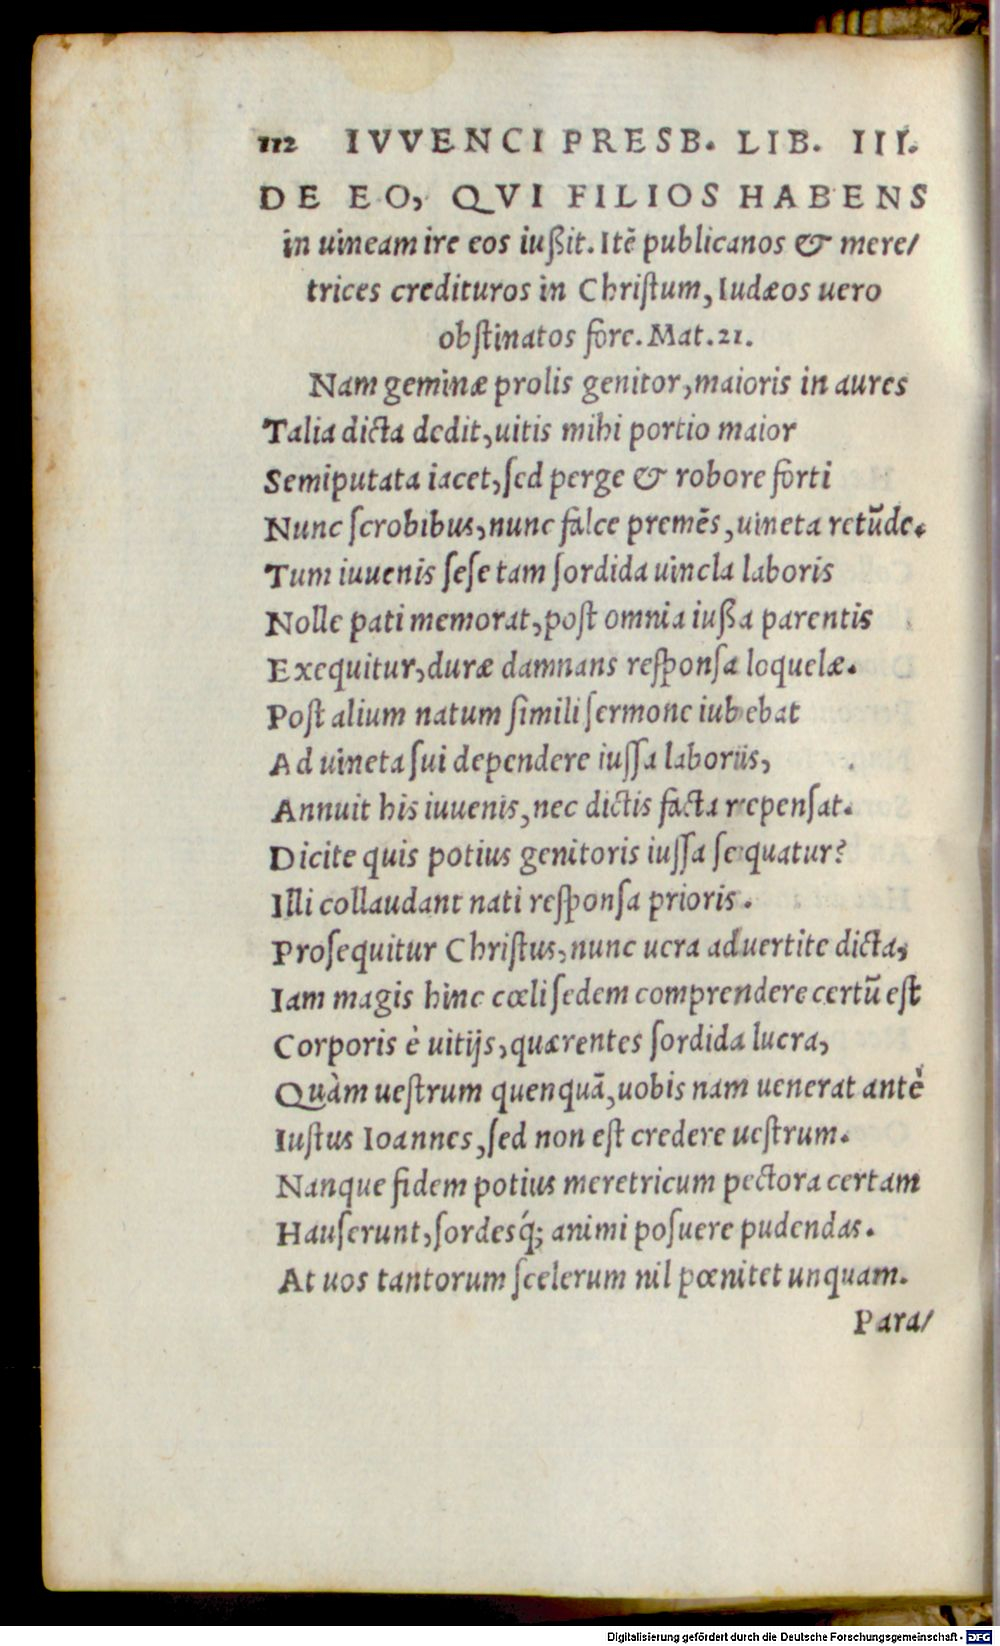 112 IVVENCI PRESB. LIB. III.
DE EO, QVI FILIOS HABENS
in uineam ire eos iußit. Itē publicanos & mere/
trices credituros in Christum, Iudæos uero
obstinatos fore. Mat. 21.
Nam geminæ prolis genitor, maioris in aures
Talia dicta dedit, uitis mihi portio maior
Semiputata iacet, sed perge & robore forti
Nunc scrobibus, nunc falce premēs, uineta retūde.
Tum iuuenis sese tam sordida uincla laboris
Nolle pati memorat, post omnia iußa parentis
Exequitur, duræ damnans responsa loquelæ.
Post alium natum simili sermone iubebat
Ad uineta sui dependere iussa laboris,
Annuit his iuuenis, nec dictis facta repensat.
Dicite quis potius genitoris iussa sequatur?
Illi collaudant nati responsa prioris.
Prosequitur Christus, nunc uera aduertite dicta,
Iam magis hinc cœli sedem comprendere certū est
Corporis è uitijs, quærentes sordida lucra,
Quàm uestrum quenquā, uobis nam uenerat antè
Iustus Ioannes, sed non est credere uestrum.
Nanque fidem potius meretricum pectora certam
Hauserunt, sordesq́; animi posuere pudendas.
At uos tantorum scelerum nil pœnitet unquam.
Para/
Digitalisierung gefördert durch die Deutsche Forschungsgemeinschaft - DFG